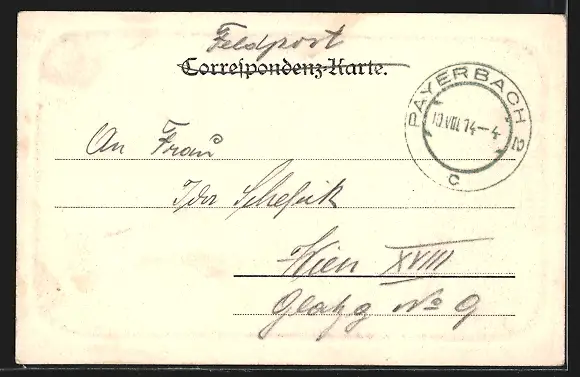 Feldpost
Correspondenz-Karte.
PAYERBACH 2
10.VIII.14-4
c
An Frau
Ida
Wien XVIII
No 9